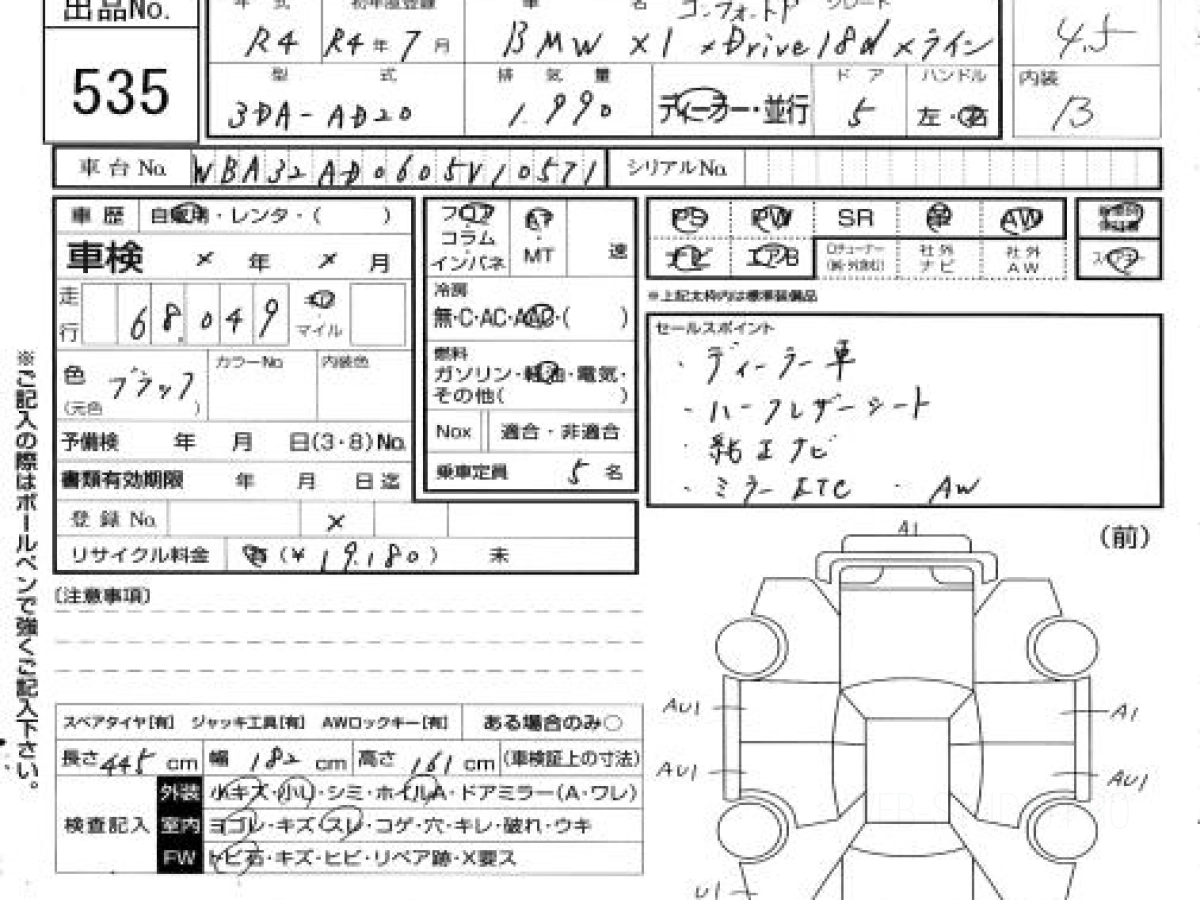 出品No.
535
年 式 初年度登録 車 名 グレード
R4 R4年7月 BMW X1 xDrive18d xライン
4.5
型 式 排 気 量 ドア ハンドル 内装
3DA-AD20 1.990 ディーラー・並行 5 左・右 B
車台No. WBA32AD0605V10571 シリアルNo.
車 歴 自家用・レンタ・( )
車検 × 年 × 月
走行 68,049 キロ マイル
色 ブラック カラーNo 内装色
(元色 )
予備検 年 月 日(3・8)No.
書類有効期限 年 月 日迄
登 録 No. ×
リサイクル料金 有 (¥ 19.180) 未
フロア
コラム
インパネ
AT
・
MT
速
冷房
無・C・AC・AAC・( )
燃料
ガソリン・軽油・電気・
その他( )
Nox 適合・非適合
乗車定員 5 名
PS PW SR 革 AW
ナビ エアB Dチューナー 社外ナビ 社外AW スペアキー
※上記太枠内は標準装備品
セールスポイント
・ディーラー車
・ハーフレザーシート
・純正ナビ
・ミラーETC ・AW
※ご記入の際はボールペンで強くご記入下さい。
〔注意事項〕
スペアタイヤ[有] ジャッキ工具[有] AWロックキー[有] ある場合のみ○
長さ445cm 幅 182cm 高さ 161cm (車検証上の寸法)
検査記入
外装 小キズ・小U・シミ・ホイルA・ドアミラー(A・ワレ)
室内 ヨゴレ・キズ・スレ・コゲ・穴・キレ・破れ・ウキ
FW トビ石・キズ・ヒビ・リペア跡・X要ス
A1
(前)
AU1
A1
AU1
AU1
U1